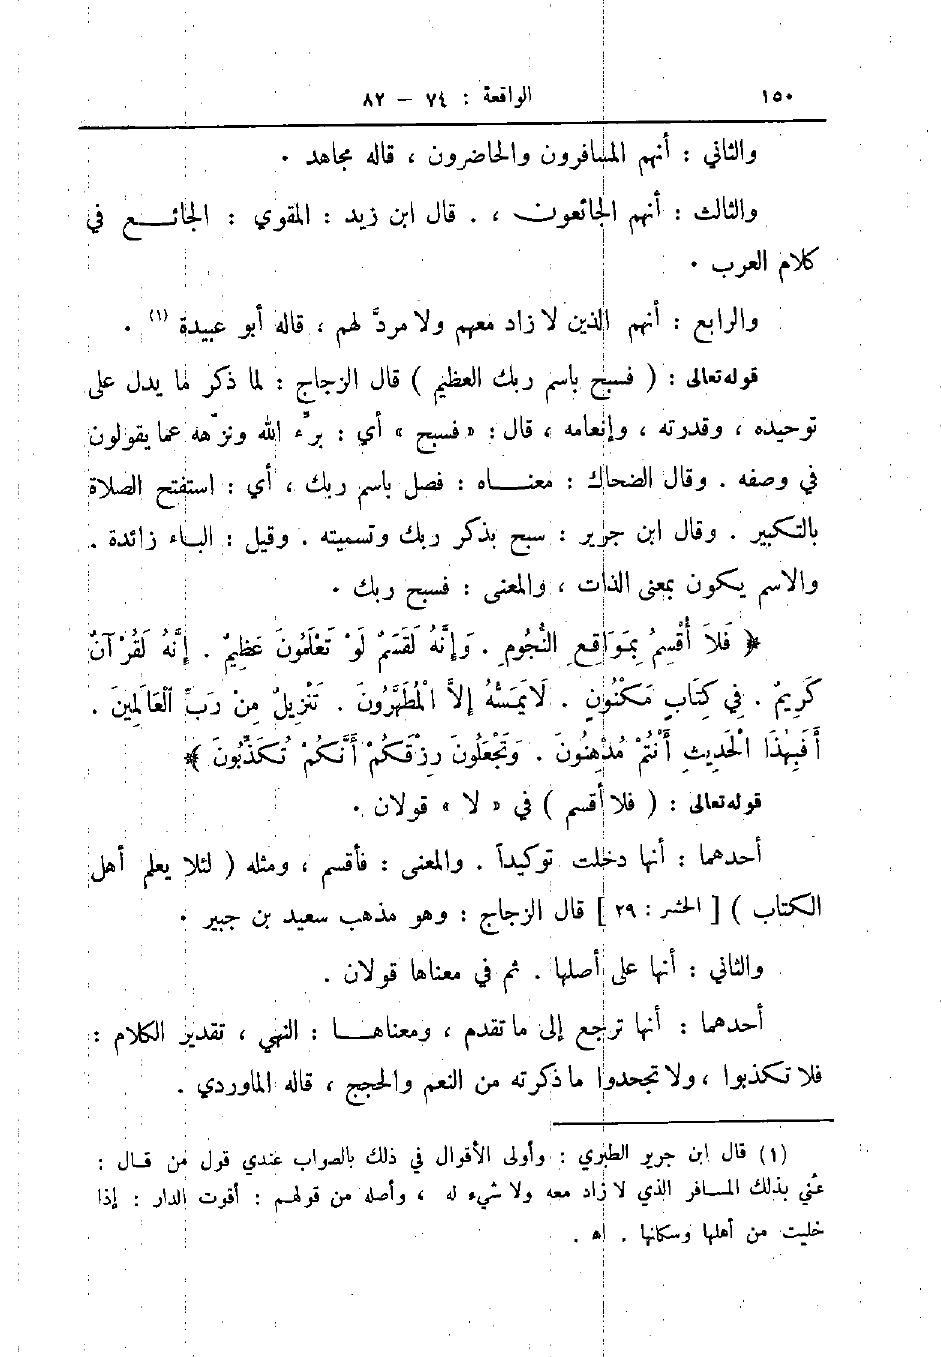 ١٥٠ الواقعة : ٧٤ – ٨٢
والثاني : أنهم المسافرون والحاضرون ، قاله مجاهد .
والثالث : أنهم الجائعون ، . قال ابن زيد : المقوي : الجائع في
كلام العرب .
والرابع : أنهم الذين لا زاد معهم ولا مردَّ لهم ، قاله أبو عبيدة (١) .
قوله تعالى : ( فسبح باسم ربك العظيم ) قال الزجاج : لما ذكر ما يدل على
توحيده ، وقدرته ، وإنعامه ، قال : « فسبح » أي : برِّء الله ونزّهه عما يقولون
في وصفه . وقال الضحاك : معناه : فصل باسم ربك ، أي : استفتح الصلاة
بالتكبير . وقال ابن جرير : سبح بذكر ربك وتسميته . وقيل : الباء زائدة .
والاسم يكون بمعنى الذات ، والمعنى : فسبح ربك .
﴿ فَلاَ أُقْسِمُ بِمَوَاقِعِ النُّجُومِ . وَإِنَّهُ لَقَسَمٌ لَوْ تَعْلَمُونَ عَظِيمٌ . إِنَّهُ لَقُرْآنٌ
كَرِيمٌ . فِي كِتَابٍ مَكْنُونٍ . لَا يَمَسُّهُ إِلاَّ الْمُطَهَّرُونَ . تَنْزِيلٌ مِنْ رَبِّ الْعَالَمِينَ .
أَفَبِهٰذَا الْحَدِيثِ أَنْتُمْ مُدْهِنُونَ . وَتَجْعَلُونَ رِزْقَكُمْ أَنَّكُمْ تُكَذِّبُونَ ﴾
قوله تعالى : ( فلا أقسم ) في « لا » قولان .
أحدهما : أنها دخلت توكيداً . والمعنى : فأقسم ، ومثله ( لئلا يعلم أهل
الكتاب ) [ الحشر : ٢٩ ] قال الزجاج : وهو مذهب سعيد بن جبير .
والثاني : أنها على أصلها . ثم في معناها قولان .
أحدهما : أنها ترجع إلى ما تقدم ، ومعناها : النهي ، تقدير الكلام :
فلا تكذبوا ، ولا تجحدوا ما ذكرته من النعم والحجج ، قاله الماوردي .
(١) قال ابن جرير الطبري : وأولى الأقوال في ذلك بالصواب عندي قول من قال :
عُني بذلك المسافر الذي لا زاد معه ولا شيء له ، وأصله من قولهم : أقوت الدار : إذا
خليت من أهلها وسكانها . اه .